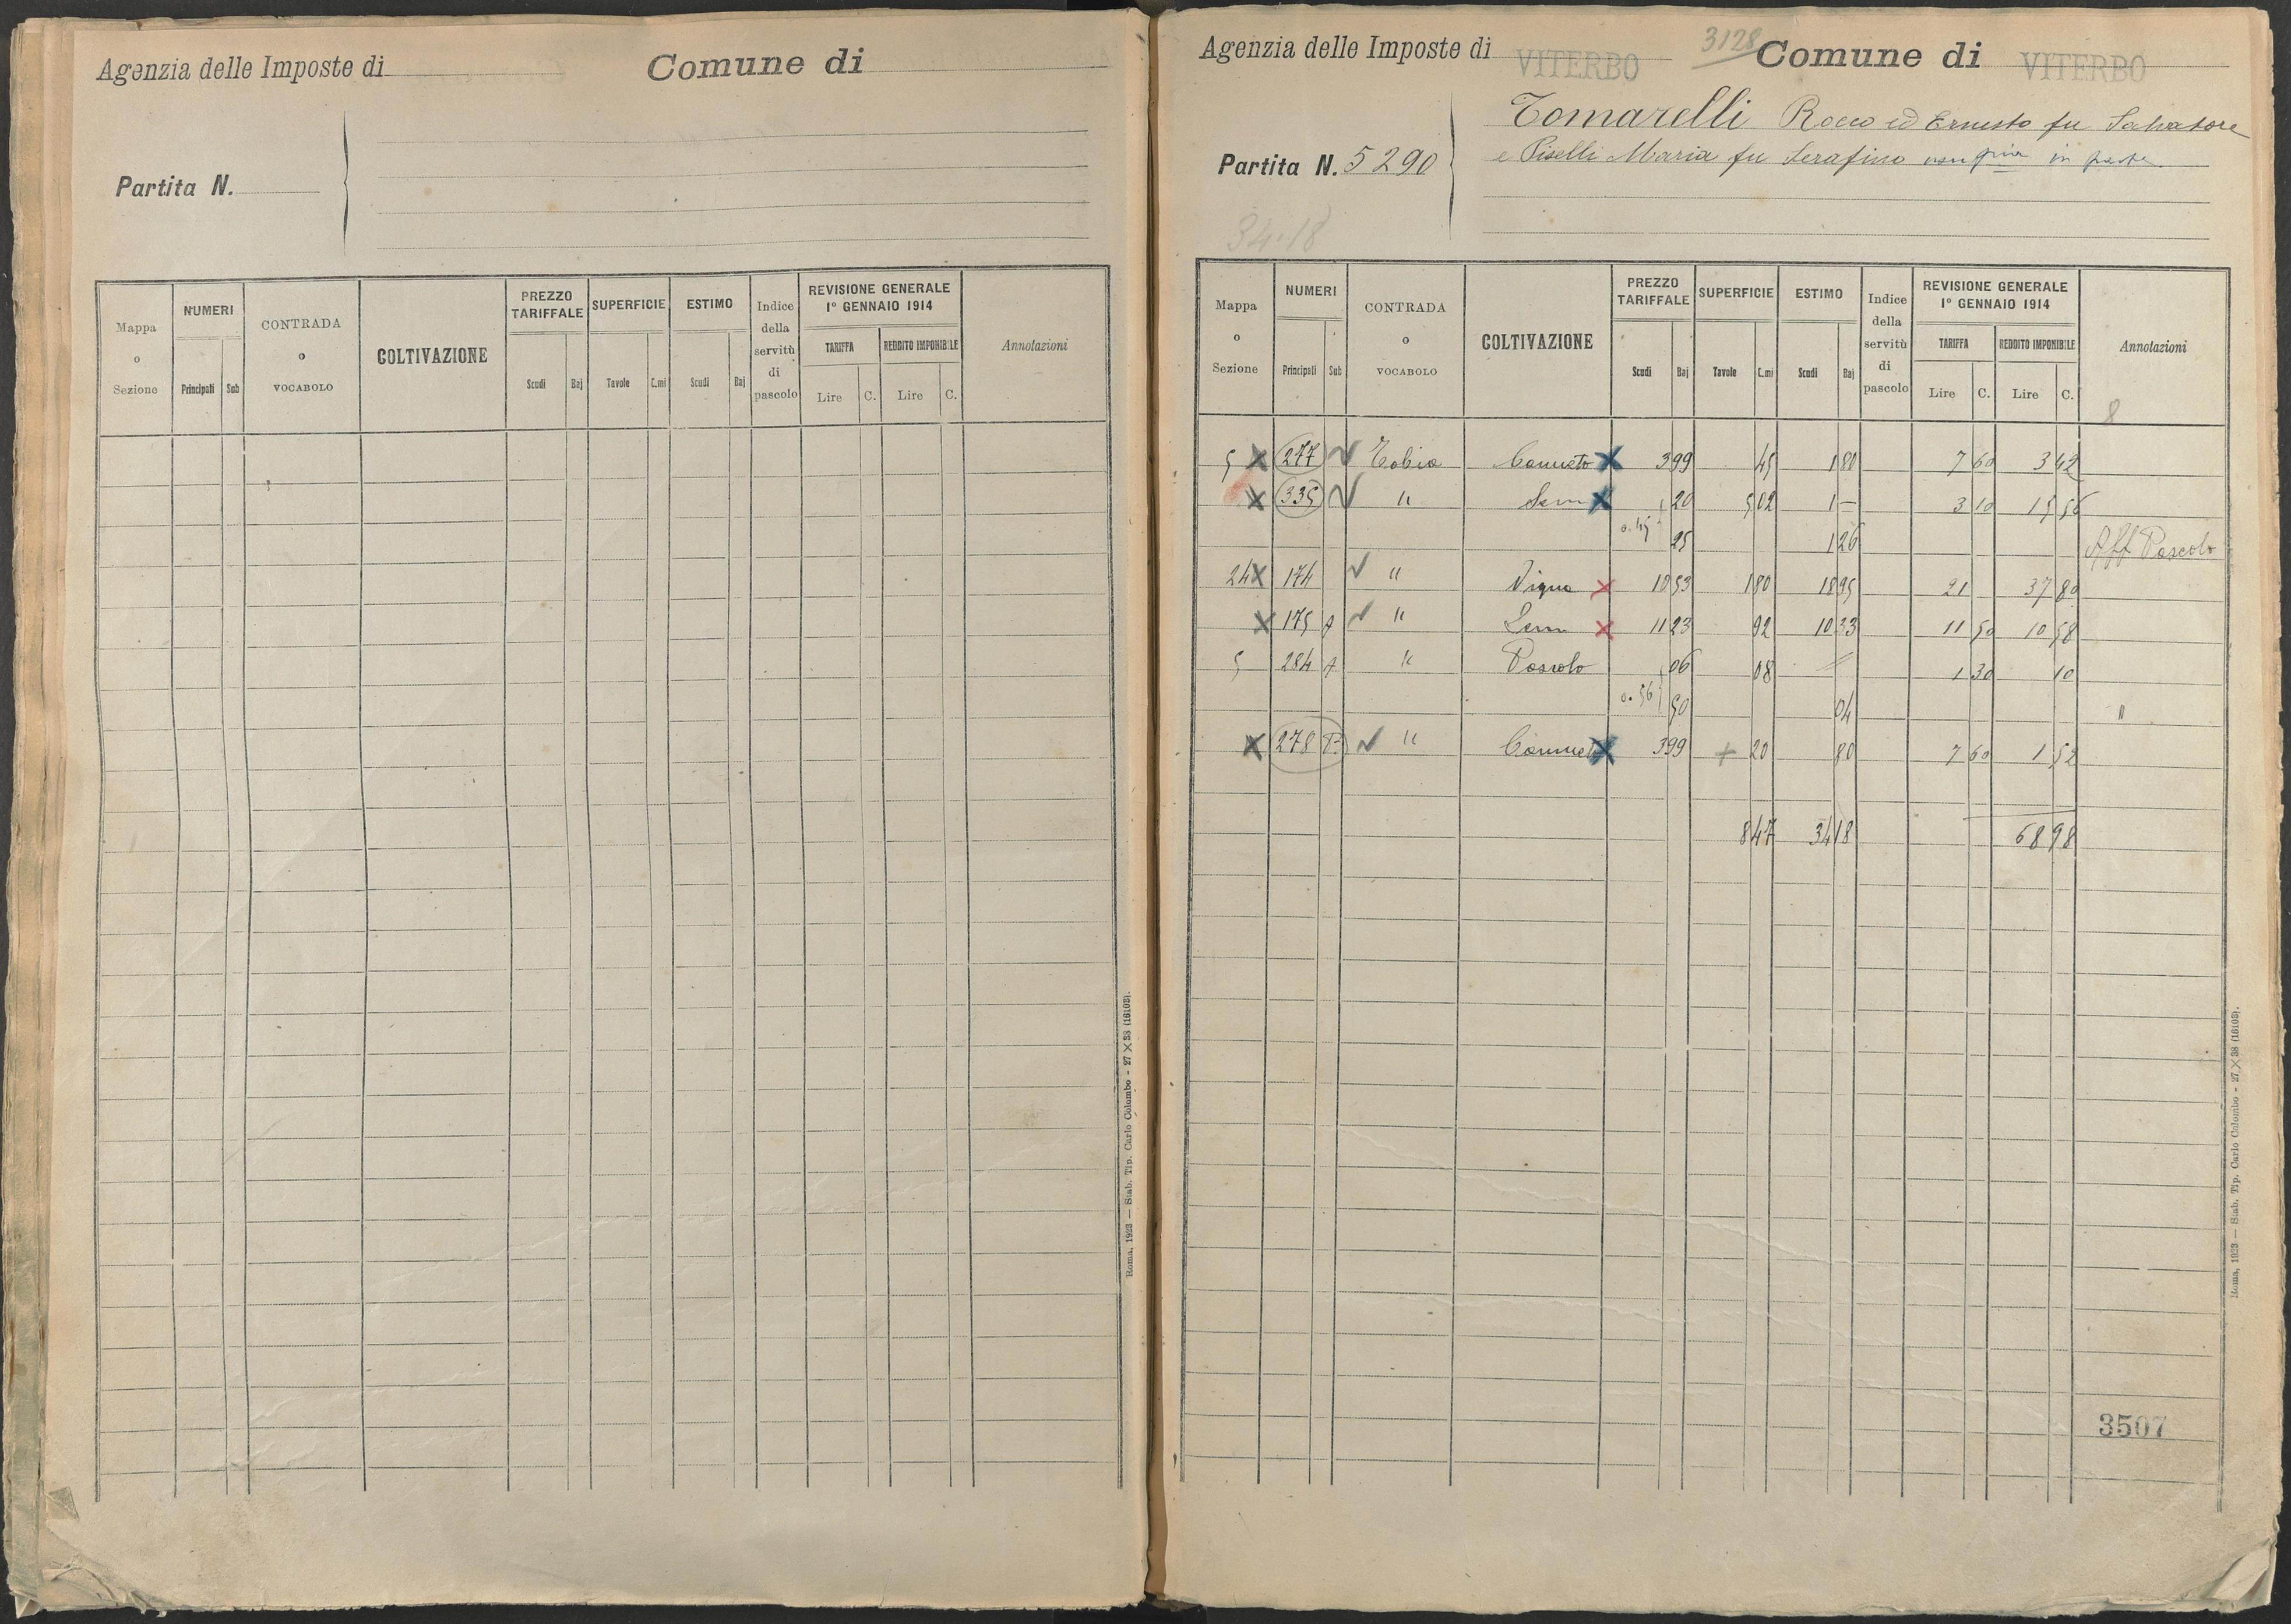 Agenzia delle Imposte di
Comune di
Partita N.
Mappa o Sezione
NUMERI
Principali Sub
CONTRADA o VOCABOLO
COLTIVAZIONE
PREZZO TARIFFALE
Scudi Baj
SUPERFICIE
Tavole C.mi
ESTIMO
Scudi Baj
Indice della servitù di pascolo
REVISIONE GENERALE
1° GENNAIO 1914
TARIFFA
Lire C.
REDDITO IMPONIBILE
Lire C.
Annotazioni
Roma, 1923 — Stab. Tip. Carlo Colombo - 27 X 38 (16103).
Agenzia delle Imposte di VITERBO 3128 Comune di VITERBO
Partita N. 5290
Tomarelli Rocco ed Ernesto fu Salvatore
e Piselli Maria fu Serafino in parte
34.18
Mappa o Sezione
NUMERI
Principali Sub
CONTRADA o VOCABOLO
COLTIVAZIONE
PREZZO TARIFFALE
Scudi Baj
SUPERFICIE
Tavole C.mi
ESTIMO
Scudi Baj
Indice della servitù di pascolo
REVISIONE GENERALE
1° GENNAIO 1914
TARIFFA
Lire C.
REDDITO IMPONIBILE
Lire C.
Annotazioni
8
5 X 277 Tobia Canneto X 3 99 45 1 80 7 60 3 42
X 335 " Sem X 20 5 02 1 — 3 10 15 56
0.45 25 1 26 Aff Pascolo
24 X 174 " Vigna X 10 53 1 80 18 95 21 37 80
X 175 A " Sem X 11 23 92 10 33 11 50 10 58
5 284 A " Pascolo 06 08 1 30 10
0.56 50 04 "
X 278 " Canneto X 3 99 + 20 80 7 60 1 52
8 47 34 18 68 98
3507
Roma, 1923 — Stab. Tip. Carlo Colombo - 27 X 38 (16103).